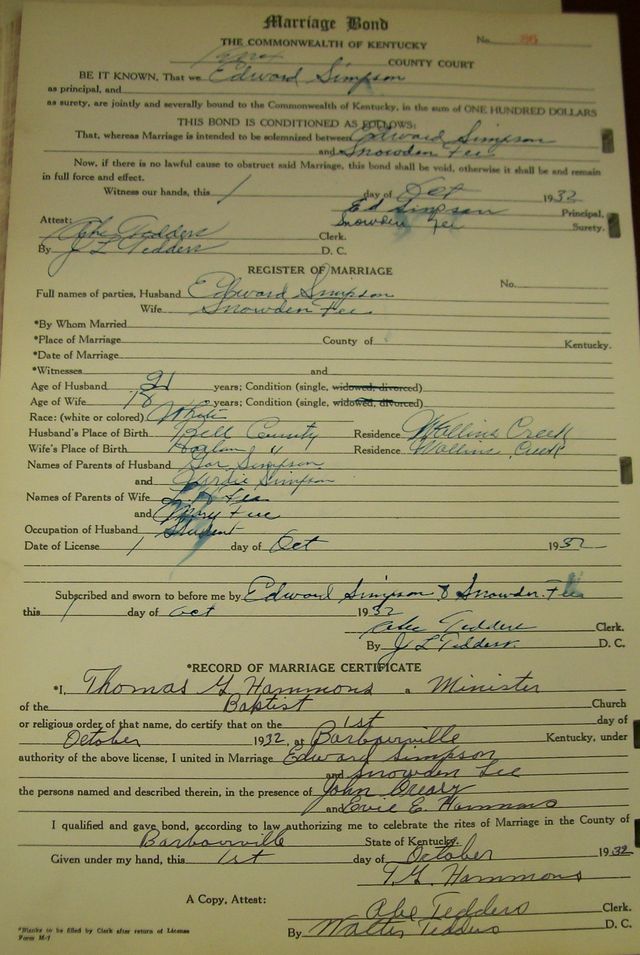 Marriage Bond
THE COMMONWEALTH OF KENTUCKY
No. 86
Knox COUNTY COURT
BE IT KNOWN, That we Edward Simpson
as principal, and
as surety, are jointly and severally bound to the Commonwealth of Kentucky, in the sum of ONE HUNDRED DOLLARS
THIS BOND IS CONDITIONED AS FOLLOWS:
That, whereas Marriage is intended to be solemnized between Edward Simpson
and Snowden Fee
Now, if there is no lawful cause to obstruct said Marriage, this bond shall be void, otherwise it shall be and remain
in full force and effect.
Witness our hands, this 1 day of Oct 1932
Ed Simpson Principal,
Snowden Fee Surety.
Attest:
Abe Tedders Clerk.
By J L Tedders D. C.
REGISTER OF MARRIAGE
No.
Full names of parties, Husband Edward Simpson
Wife Snowden Fee
*By Whom Married
*Place of Marriage County of Kentucky.
*Date of Marriage
*Witnesses and
Age of Husband 21 years; Condition (single, widowed, divorced)
Age of Wife 18 years; Condition (single, widowed, divorced)
Race: (white or colored) White
Husband's Place of Birth Bell County Residence Wallins Creek
Wife's Place of Birth Harlan " Residence Wallins Creek
Names of Parents of Husband Simpson
and Simpson
Names of Parents of Wife Fee
and Mary Fee
Occupation of Husband Student
Date of License 1 day of Oct 1932
Subscribed and sworn to before me by Edward Simpson & Snowden Fee
this 1 day of Oct 1932
Abe Tedders Clerk.
By J L Tedders D. C.
*RECORD OF MARRIAGE CERTIFICATE
*I, Thomas G Hammons a Minister
of the Baptist Church
or religious order of that name, do certify that on the 1st day of
October 1932, at Barbourville Kentucky, under
authority of the above license, I united in Marriage Edward Simpson
and Snowden Lee
the persons named and described therein, in the presence of John Creasy
and Evie E. Hammons
I qualified and gave bond, according to law authorizing me to celebrate the rites of Marriage in the County of
Barbourville State of Kentucky.
Given under my hand, this 1st day of October 1932
T.G. Hammons
A Copy, Attest:
Abe Tedders Clerk.
By Walter Tedders D. C.
*Blanks to be filled by Clerk after return of License
Form M-1